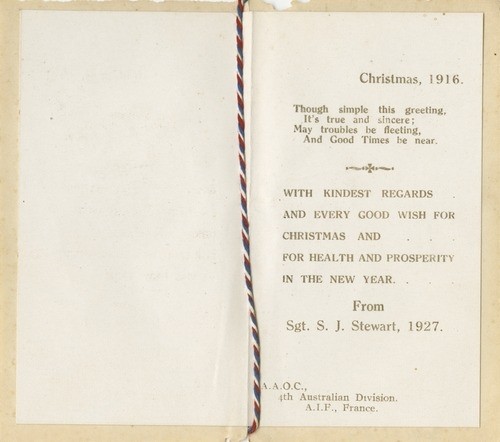 Christmas, 1916.
Though simple this greeting,
It's true and sincere;
May troubles be fleeting,
And Good Times be near.
WITH KINDEST REGARDS .
AND EVERY GOOD WISH FOR
CHRISTMAS AND . . .
FOR HEALTH AND PROSPERITY
IN THE NEW YEAR. . .
From
Sgt. S. J. Stewart, 1927.
A.A.O.C.,
4th Australian Division.
A.I.F., France.